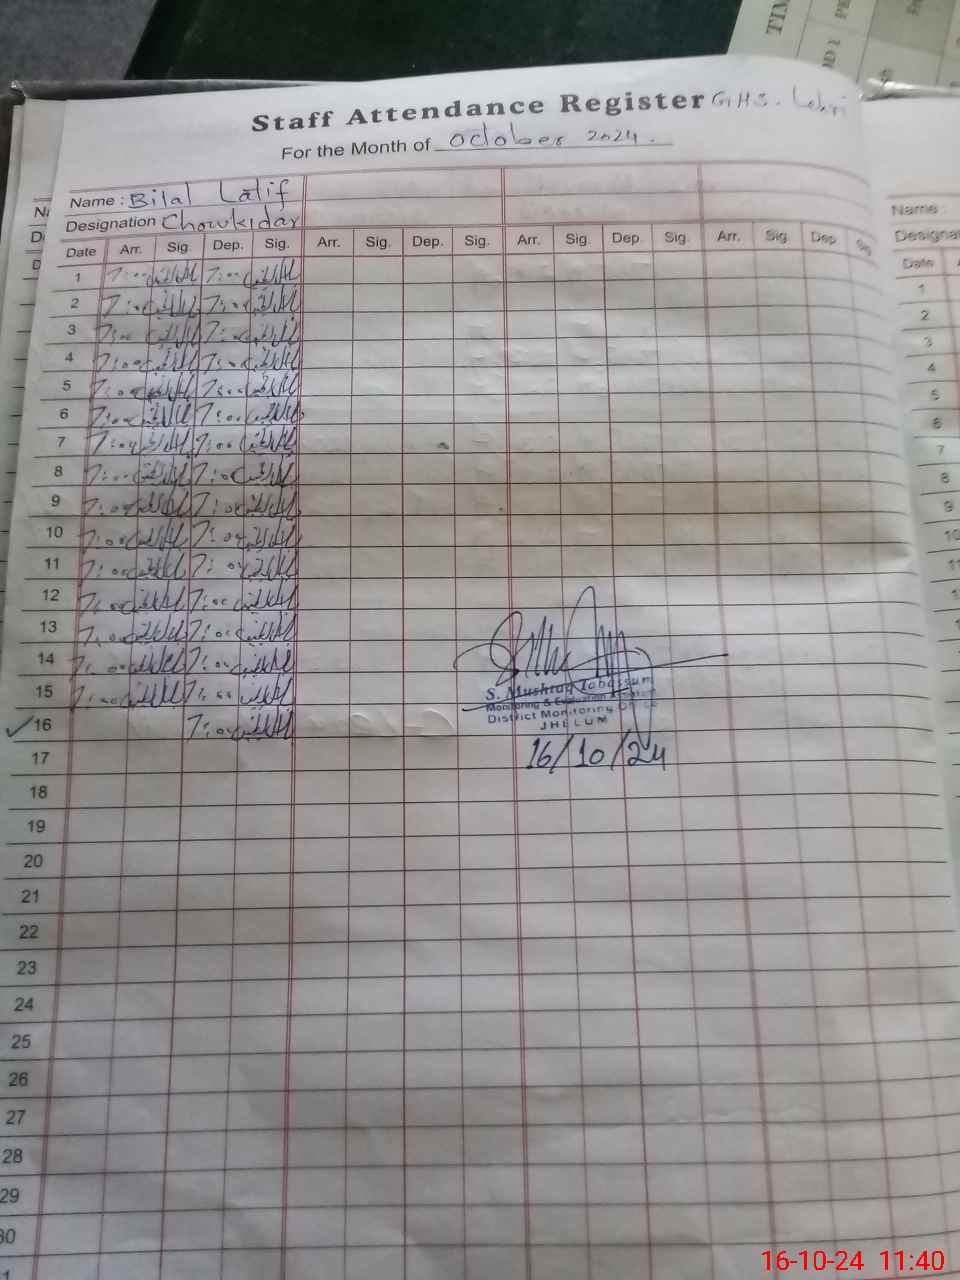 Staff Attendance Register G.H.S. Lehri
For the Month of October 2024.
Name : Bilal Latif
Designation Chowkidar
Date Arr. Sig. Dep. Sig. Arr. Sig. Dep. Sig. Arr. Sig. Dep. Sig. Arr. Sig Dep Sig
1 7:00 7:00
2 7:00 7:00
3 7:00 7:00
4 7:00 7:00
5 7:00 7:00
6 7:00 7:00
7 7:00 7:00
8 7:00 7:00
9 7:00 7:00
10 7:00 7:00
11 7:00 7:00
12 7:00 7:00
13 7:00 7:00
14 7:00 7:00
15 7:00 7:00
16 7:00
S. Mushtaq Tabassum
Monitoring & Evaluation
District Monitoring Office
JHELUM
16/10/24
17
18
19
20
21
22
23
24
25
26
27
28
29
30
Name :
Date
1
2
3
4
5
6
7
8
9
10
16-10-24 11:40